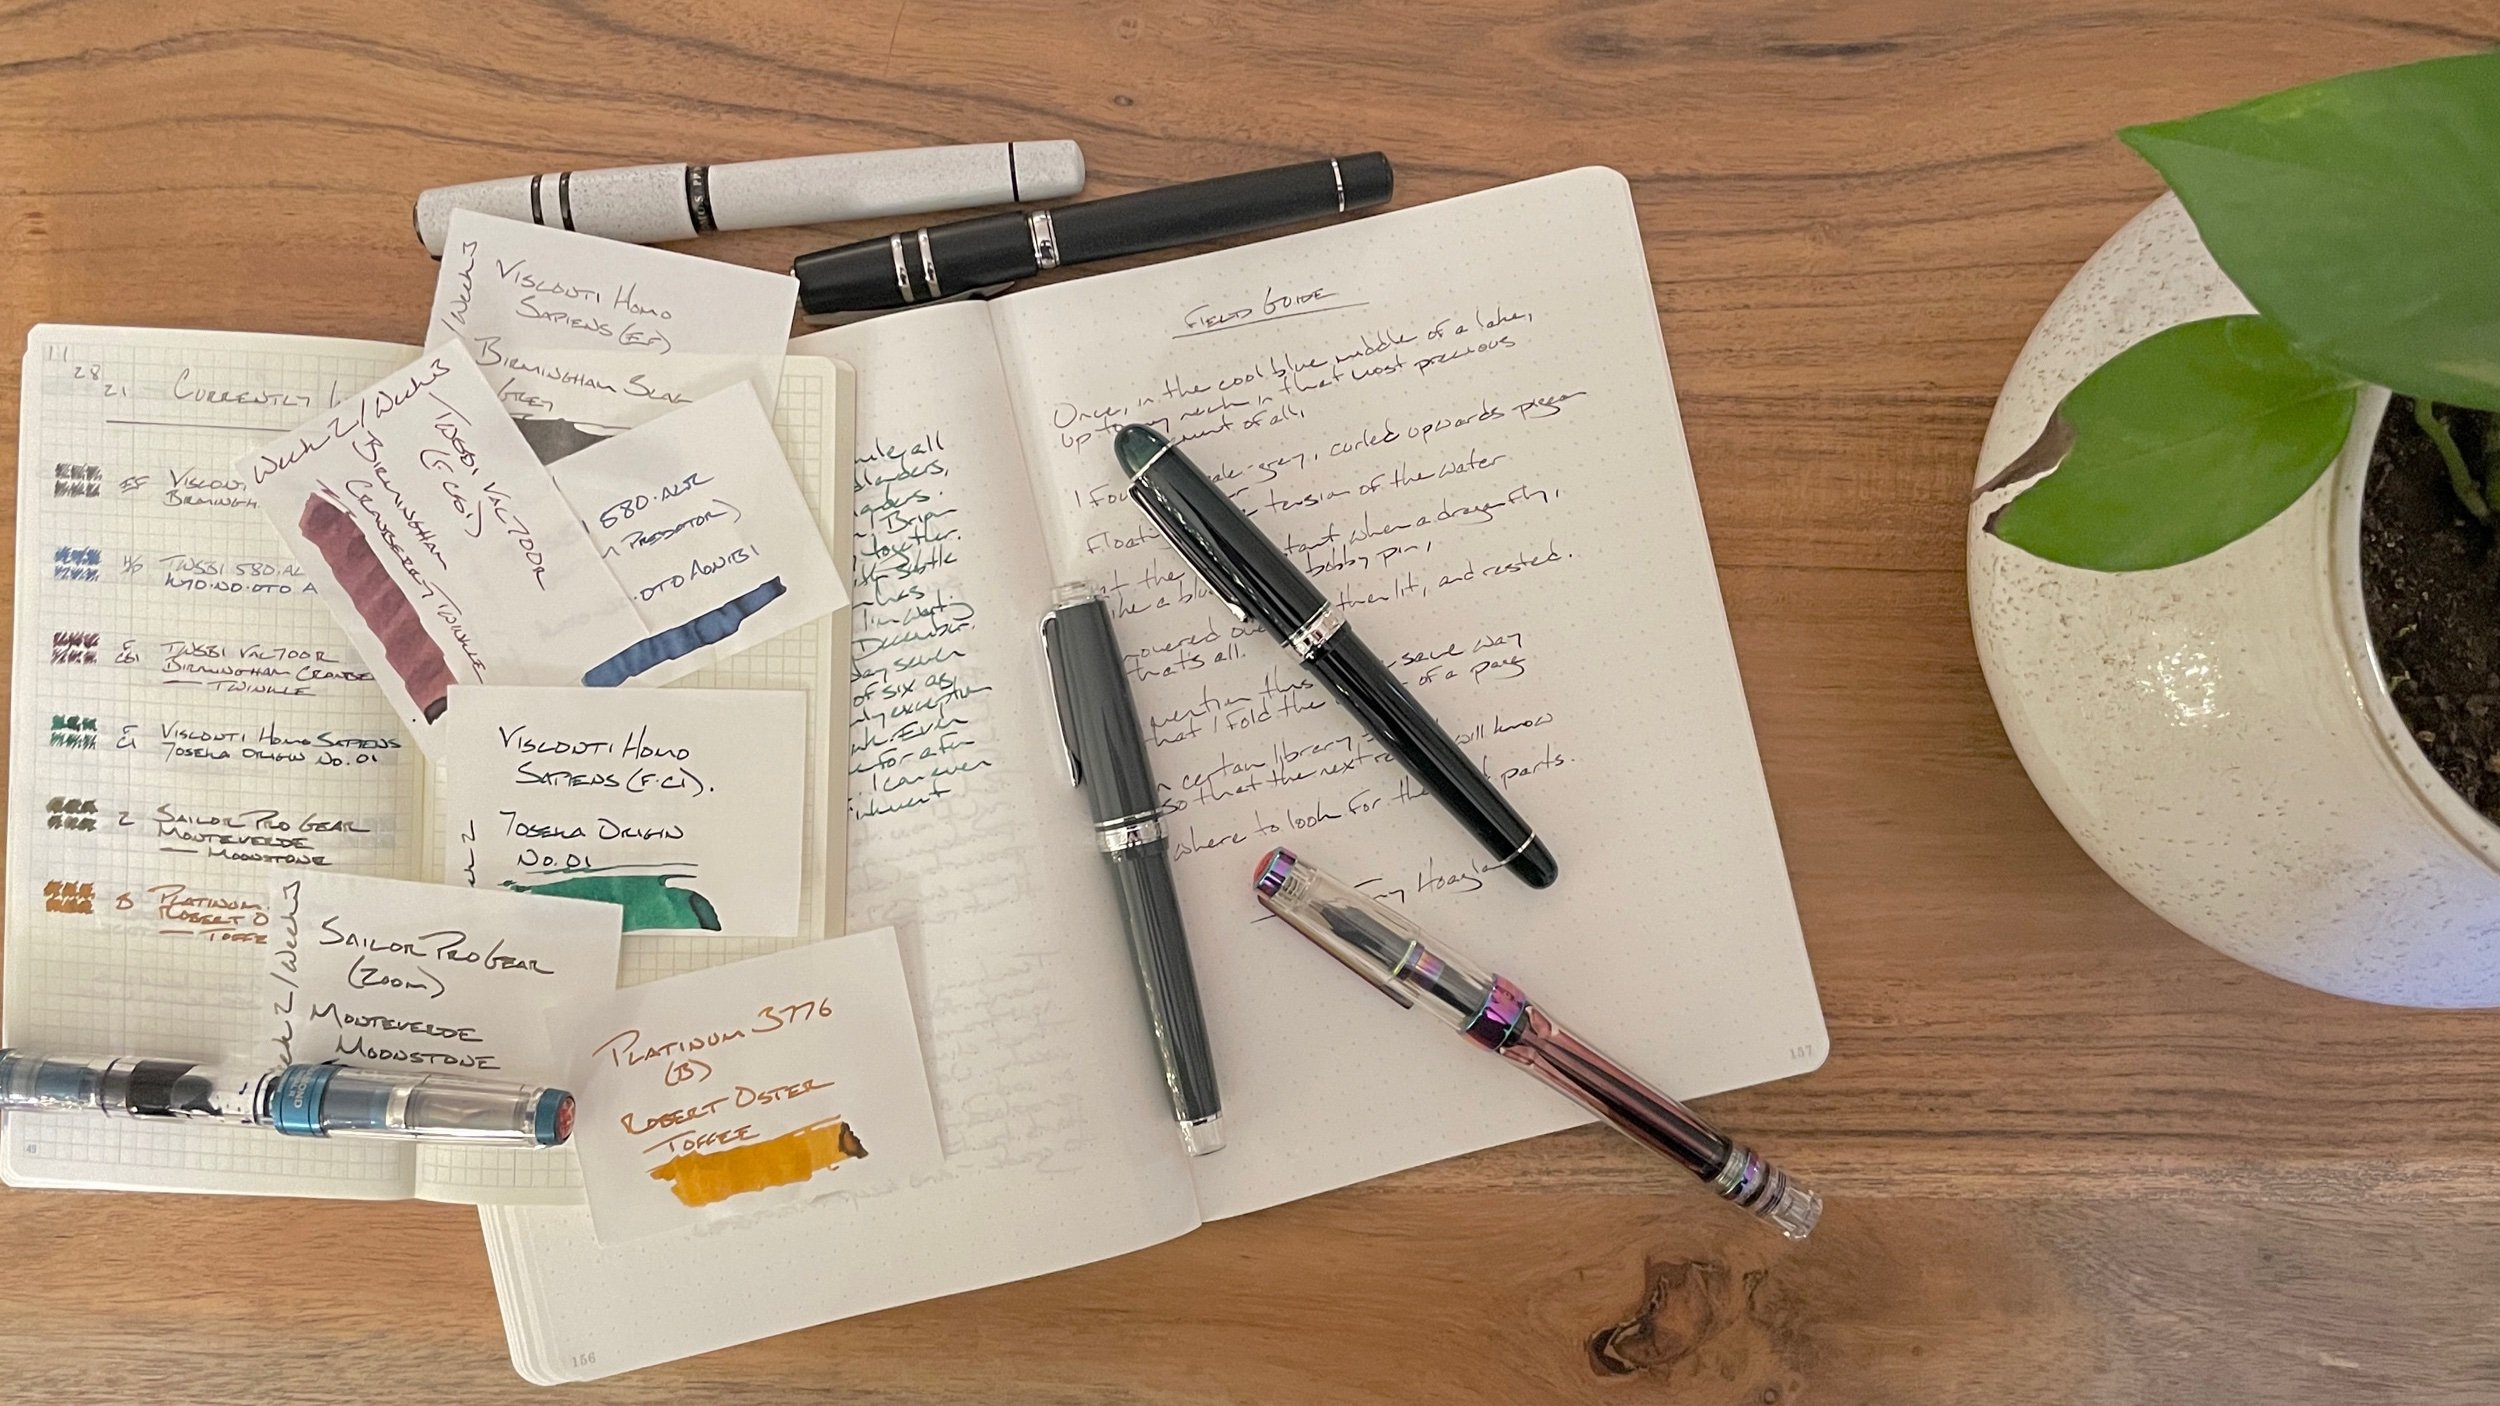 11
28
21
CURRENTLY
EF VISCONTI
BIRMINGH
TWSBI 580.AL
KYO.NO.OTO A
F TWSBI VAC700R
CSI BIRMINGHAM CRANBE
— TWINKLE
F VISCONTI HOMO SAPIENS
CI TOSEKA ORIGIN NO. 01
Z SAILOR PRO GEAR
MONTEVERDE
— MOONSTONE
B PLATINUM
ROBERT O
— TOFFE
49
/Week 3
VISCONTI HOMO
SAPIENS (EF)
BIRMINGHAM SLAG
GREY
Week 2/Week 3
TWSBI VAC700R
(F CSI)
BIRMINGHAM
CRANBERRY TWINKLE
580.ALR
PREDATOR)
.OTO AONIBI
VISCONTI HOMO
SAPIENS (F.CI).
TOSEKA ORIGIN
NO. 01
Week 2/Week 3
SAILOR PRO GEAR
(ZOOM)
MONTEVERDE
MOONSTONE
PLATINUM 3776
(B)
ROBERT OSTER
TOFFEE
all
together.
subtle
has
December.
day seven
of six as
only exception
Even
for a few
I can even
156
FIELD GUIDE
Once, in the cool blue middle of a lake,
up to my neck in that most precious
element of all,
I fou ale-grey, curled upwards pigeon
float tension of the water
at the tant, when a dragonfly,
like a blu bobby pin,
hovered ov then lit, and rested.
that's all.
mention this same way
that I fold the of a page
in certain library
so that the next re will know
where to look for the parts.
Tony Hoagland
157